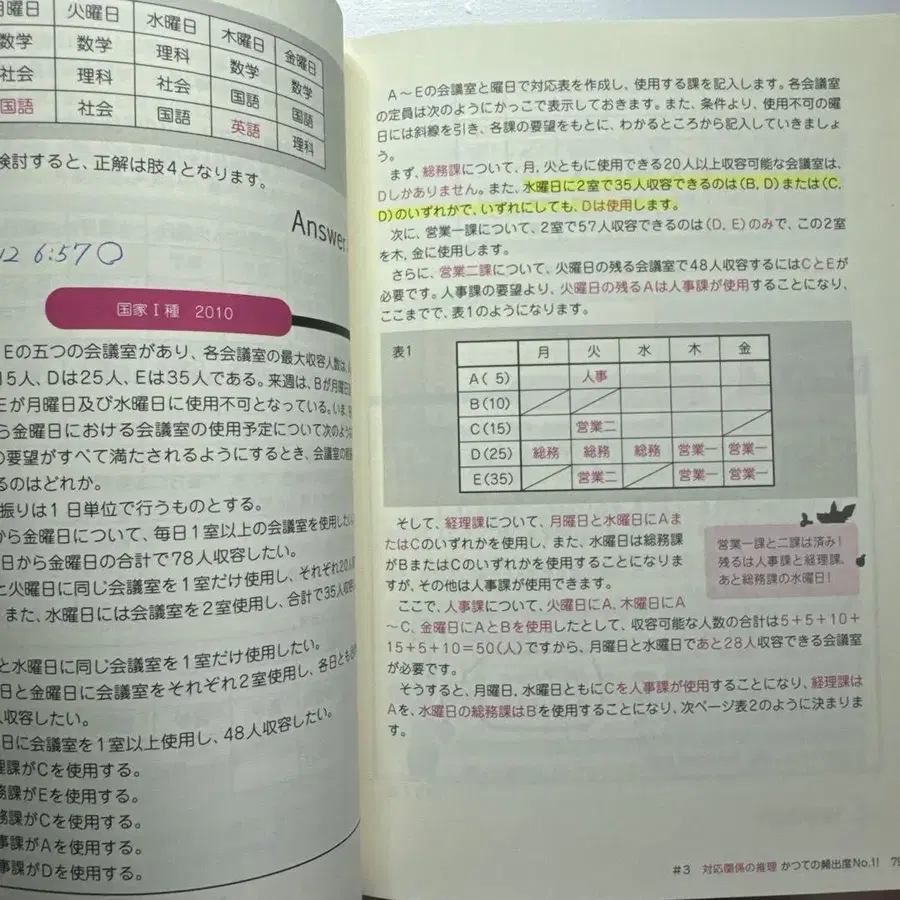 月曜日 火曜日 水曜日 木曜日 金曜日
数学 数学 理科 数学 数学
社会 理科 社会 国語 国語
国語 社会 国語 英語 理科
検討すると、正解は肢4となります。
Answer
6:57
国家Ⅰ種 2010
Eの五つの会議室があり、各会議室の最大収容人数は
15人、Dは25人、Eは35人である。来週は、Bが月曜日
Eが月曜日及び水曜日に使用不可となっている。いま、
ら金曜日における会議室の使用予定について次のよう
の要望がすべて満たされるようにするとき、会議室の
るのはどれか。
振りは1日単位で行うものとする。
から金曜日について、毎日1室以上の会議室を使用したい
日から金曜日の合計で78人収容したい。
と火曜日に同じ会議室を1室だけ使用し、それぞれ20人
また、水曜日には会議室を2室使用し、合計で35人収容
い。
と水曜日に同じ会議室を1室だけ使用したい。
日と金曜日に会議室をそれぞれ2室使用し、各日とも
人収容したい。
日に会議室を1室以上使用し、48人収容したい。
理課がCを使用する。
務課がEを使用する。
務課がCを使用する。
事課がAを使用する。
事課がDを使用する。
A～Eの会議室と曜日で対応表を作成し、使用する課を記入します。各会議室
の定員は次のようにかっこで表示しておきます。また、条件より、使用不可の曜
日には斜線を引き、各課の要望をもとに、わかるところから記入していきましょ
う。
まず、総務課について、月、火ともに使用できる20人以上収容可能な会議室は、
Dしかありません。また、水曜日に2室で35人収容できるのは(B, D)または(C,
D)のいずれかで、いずれにしても、Dは使用します。
次に、営業一課について、2室で57人収容できるのは(D, E)のみで、この2室
を木、金に使用します。
さらに、営業二課について、火曜日の残る会議室で48人収容するにはCとEが
必要です。人事課の要望より、火曜日の残るAは人事課が使用することになり、
ここまでで、表1のようになります。
表1
月 火 水 木 金
A(5) 人事
B(10)
C(15) 営業二
D(25) 総務 総務 総務 営業一 営業一
E(35) 営業二 営業一 営業一
そして、経理課について、月曜日と水曜日にAま
たはCのいずれかを使用し、また、水曜日は総務課
がBまたはCのいずれかを使用することになりま
すが、その他は人事課が使用できます。
営業一課と二課は済み!
残るは人事課と経理課、
あと総務課の水曜日!
ここで、人事課について、火曜日にA、木曜日にA
～C、金曜日にAとBを使用したとして、収容可能な人数の合計は5+5+10+
15+5+10=50(人)ですから、月曜日と水曜日であと28人収容できる会議室
が必要です。
そうすると、月曜日、水曜日ともにCを人事課が使用することになり、経理課は
Aを、水曜日の総務課はBを使用することになり、次ページ表2のように決まりま
す。
#3 対応関係の推理 かつての頻出度No.1! 79